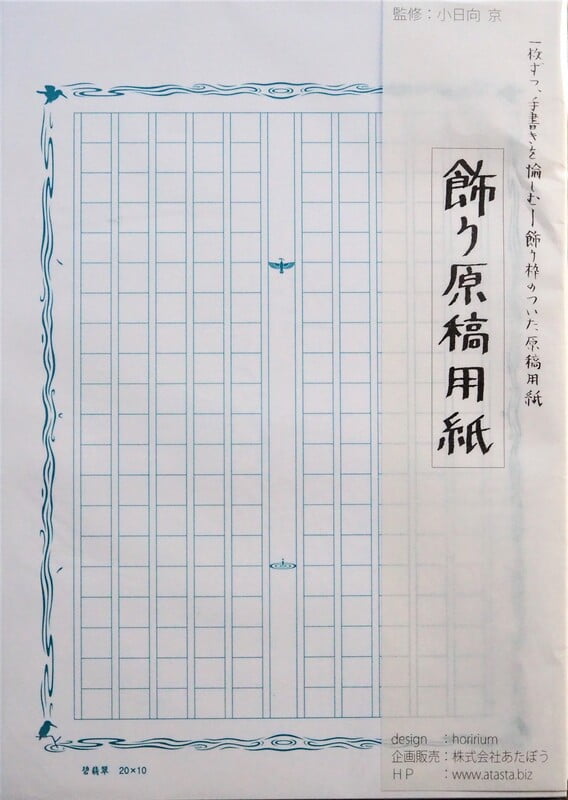 監修：小日向 京
一枚ずつ、手書きを愉しむ―飾り枠のついた原稿用紙
飾り原稿用紙
design ：horirium
企画販売：株式会社あたぼう
ＨＰ ：www.atasta.biz
碧翡翠 20×10